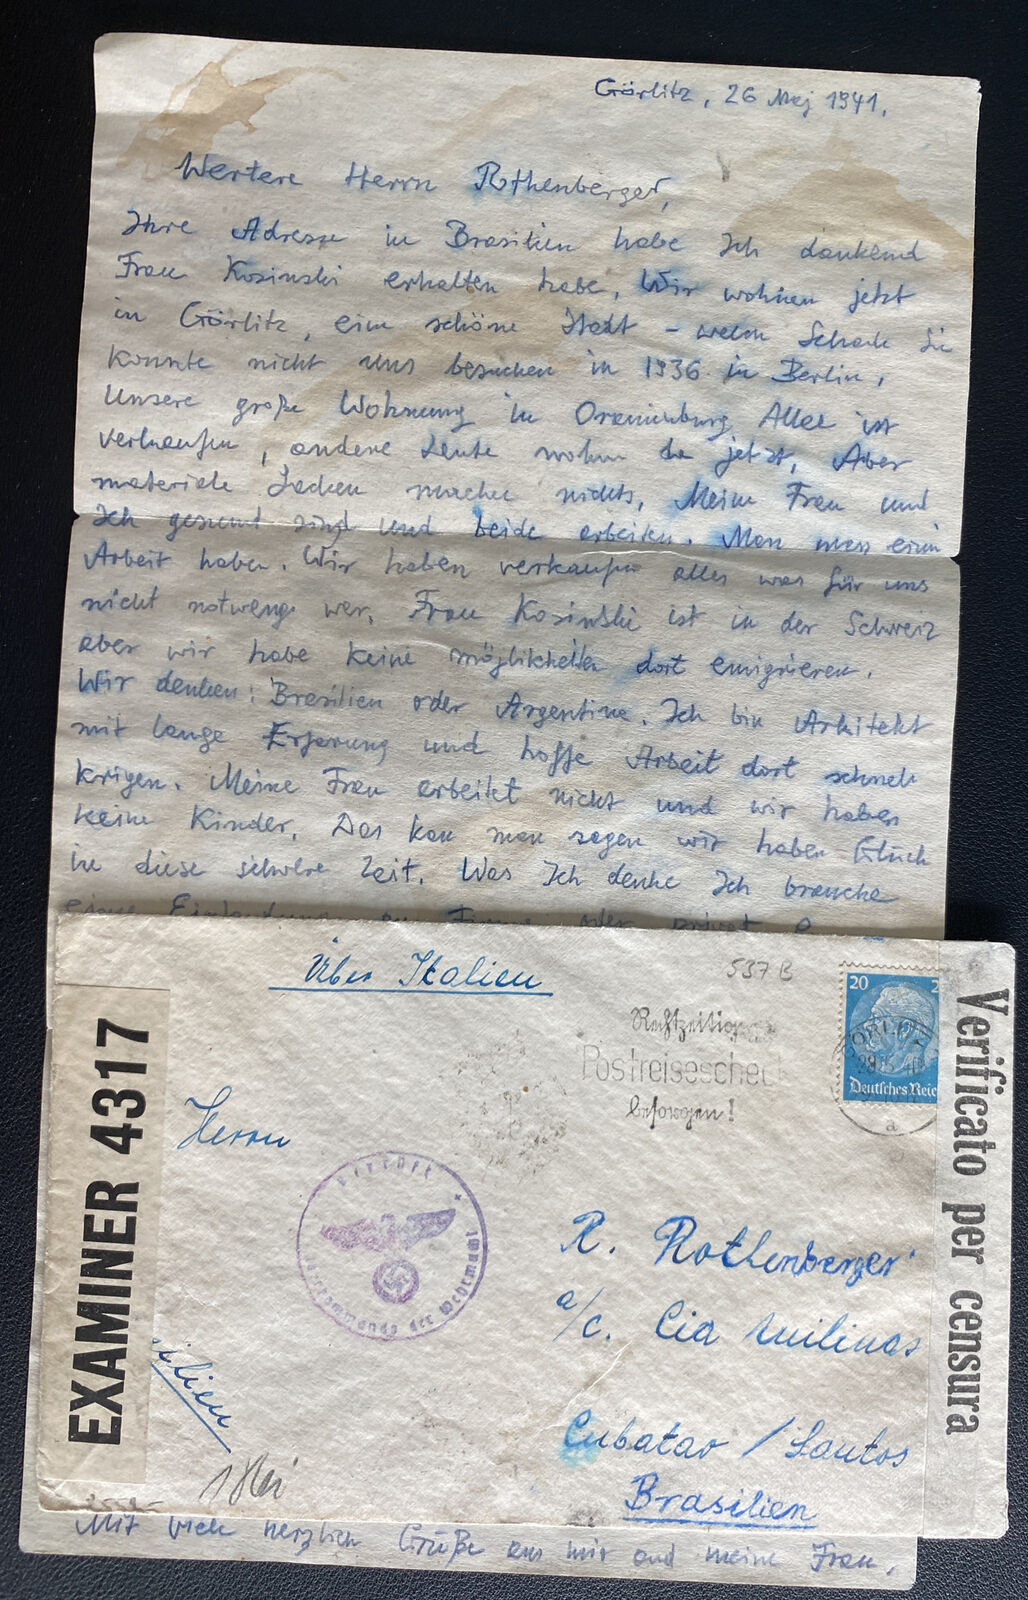 Görlitz, 26 Mej 1941.
Wertere Herrn Rothenberger,
Ihre Adresse in Brasilien habe Ich dankend
Frau Kosinski erhalten habe. Wir wohnen jetzt
in Görlitz, eine schöne Stadt – welch Schade Sie
konnte nicht uns besuchen in 1936 in Berlin.
Unsere große Wohnung in Oranienburg Allee ist
verkaufen, andere Leute wohn da jetzt. Aber
materiele Sachen machen nichts. Meine Frau und
Ich gesund sind und beide arbeiten. Man muss eine
Arbeit haben. Wir haben verkaufen alles was für uns
nicht notweng wer. Frau Kosinski ist in der Schweiz
aber wir habe keine möglikheiten dort emigrieren.
Wir denken: Brasilien oder Argentine. Ich bin Arkitekt
mit lange Erfarung und hoffe Arbeit dort schnel
krigen. Meine Frau arbeitet nicht und wir haben
keine Kinder. Das kan man sagen wir haben Glück
in diese schwere Zeit. Was Ich denke Ich brauche
eine Einladung oder privat
Über Italien
537 B
Rechtzeitig
Postreisescheck
besorgen!
20
GÖRLITZ
Deutsches Reich
a
EXAMINER 4317
Verificato per censura
Herrn
Geprüft
Oberkommando der Wehrmacht
R. Rothenberger
a/c. Cia
Cubatao / Santos
Brasilien
silien
Mit viele herzlich Grüße aus mir und meine Frau.